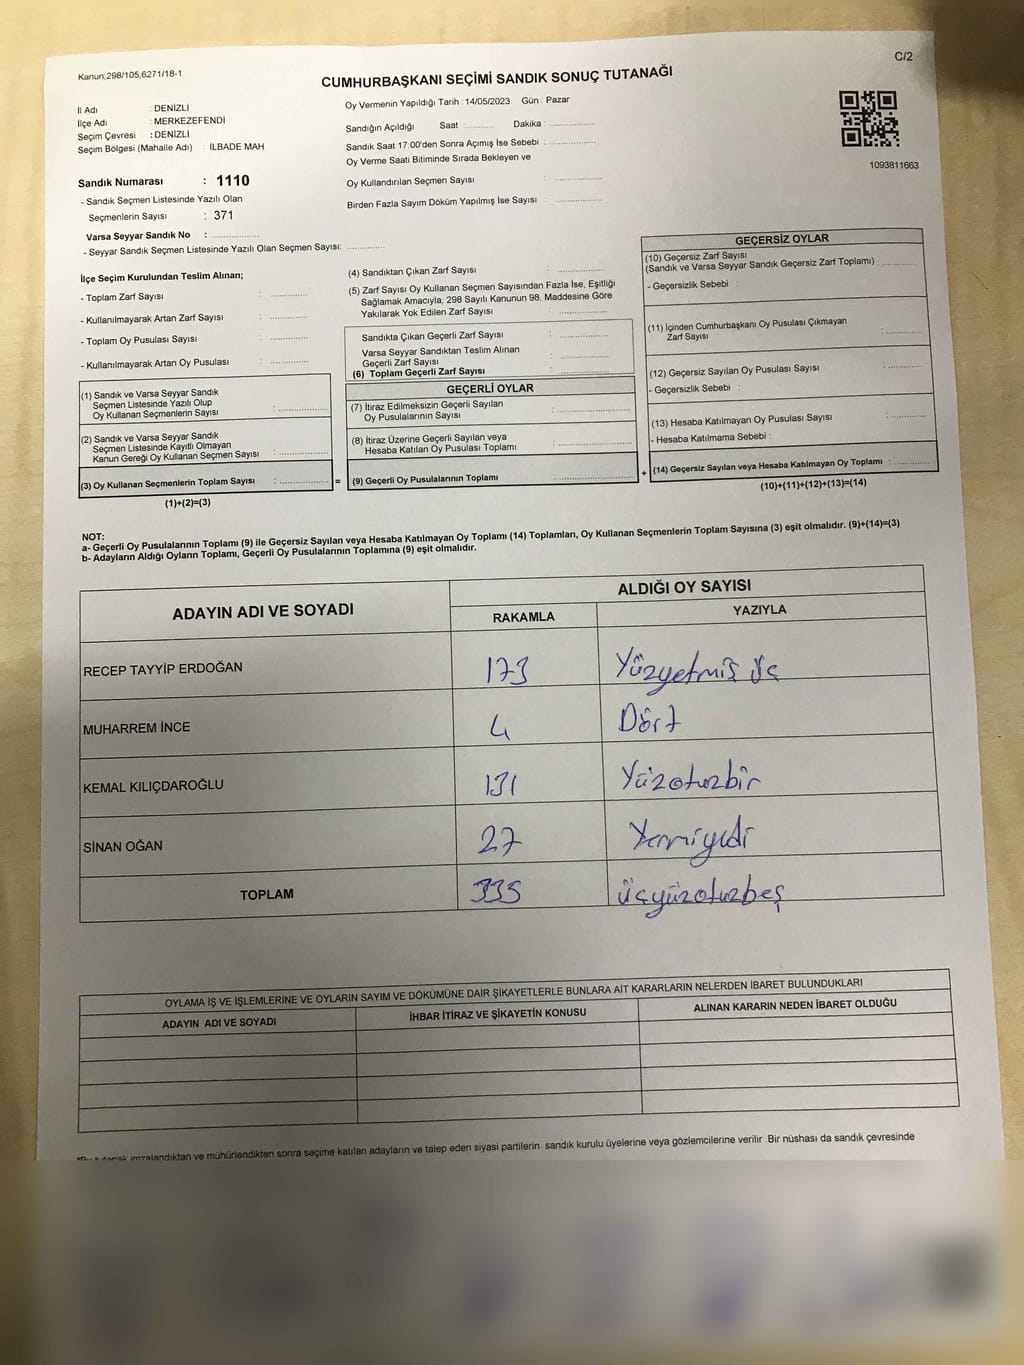 Kanun;298/105,6271/18-1
C/2
CUMHURBAŞKANI SEÇİMİ SANDIK SONUÇ TUTANAĞI
İl Adı : DENİZLİ
İlçe Adı : MERKEZEFENDİ
Seçim Çevresi : DENİZLİ
Seçim Bölgesi (Mahalle Adı) : İLBADE MAH
Sandık Numarası : 1110
- Sandık Seçmen Listesinde Yazılı Olan
Seçmenlerin Sayısı : 371
Varsa Seyyar Sandık No : ................
- Seyyar Sandık Seçmen Listesinde Yazılı Olan Seçmen Sayısı: ............
Oy Vermenin Yapıldığı Tarih : 14/05/2023 Gün : Pazar
Sandığın Açıldığı Saat :........... Dakika : ...............
Sandık Saat 17:00'den Sonra Açımış İse Sebebi : ...............
Oy Verme Saati Bitiminde Sırada Bekleyen ve
Oy Kullandırılan Seçmen Sayısı : ...............
Birden Fazla Sayım Döküm Yapılmış İse Sayısı : ...............
1093811663
İlçe Seçim Kurulundan Teslim Alınan;
- Toplam Zarf Sayısı : ............
- Kullanılmayarak Artan Zarf Sayısı : ............
- Toplam Oy Pusulası Sayısı : ............
- Kullanılmayarak Artan Oy Pusulası : ............
(1) Sandık ve Varsa Seyyar Sandık
Seçmen Listesinde Yazılı Olup
Oy Kullanan Seçmenlerin Sayısı : ...............
(2) Sandık ve Varsa Seyyar Sandık
Seçmen Listesinde Kayıtlı Olmayan
Kanun Gereği Oy Kullanan Seçmen Sayısı : ...............
(3) Oy Kullanan Seçmenlerin Toplam Sayısı : ...............
(1)+(2)=(3)
=
(4) Sandıktan Çıkan Zarf Sayısı : ...............
(5) Zarf Sayısı Oy Kullanan Seçmen Sayısından Fazla İse, Eşitliği
Sağlamak Amacıyla; 298 Sayılı Kanunun 98. Maddesine Göre
Yakılarak Yok Edilen Zarf Sayısı : ...............
Sandıkta Çıkan Geçerli Zarf Sayısı : ...............
Varsa Seyyar Sandıktan Teslim Alınan
Geçerli Zarf Sayısı : ...............
(6) Toplam Geçerli Zarf Sayısı : ...............
GEÇERLİ OYLAR
(7) İtiraz Edilmeksizin Geçerli Sayılan
Oy Pusulalarının Sayısı : ...............
(8) İtiraz Üzerine Geçerli Sayılan veya
Hesaba Katılan Oy Pusulası Toplamı : ...............
(9) Geçerli Oy Pusulalarının Toplamı : ...............
+
GEÇERSİZ OYLAR
(10) Geçersiz Zarf Sayısı
(Sandık ve Varsa Seyyar Sandık Geçersiz Zarf Toplamı) : ............
- Geçersizlik Sebebi :
(11) İçinden Cumhurbaşkanı Oy Pusulası Çıkmayan
Zarf Sayısı : ............
(12) Geçersiz Sayılan Oy Pusulası Sayısı : ............
- Geçersizlik Sebebi :
(13) Hesaba Katılmayan Oy Pusulası Sayısı : ............
- Hesaba Katılmama Sebebi :
(14) Geçersiz Sayılan veya Hesaba Katılmayan Oy Toplamı : ............
(10)+(11)+(12)+(13)=(14)
NOT:
a- Geçerli Oy Pusulalarının Toplamı (9) ile Geçersiz Sayılan veya Hesaba Katılmayan Oy Toplamı (14) Toplamları, Oy Kullanan Seçmenlerin Toplam Sayısına (3) eşit olmalıdır. (9)+(14)=(3)
b- Adayların Aldığı Oyların Toplamı, Geçerli Oy Pusulalarının Toplamına (9) eşit olmalıdır.
ADAYIN ADI VE SOYADI
ALDIĞI OY SAYISI
RAKAMLA YAZIYLA
RECEP TAYYİP ERDOĞAN 173 Yüzyetmiş üç
MUHARREM İNCE 4 Dört
KEMAL KILIÇDAROĞLU 131 Yüzotuzbir
SİNAN OĞAN 27 Yirmiyedi
TOPLAM 335 üçyüzotuzbeş
OYLAMA İŞ VE İŞLEMLERİNE VE OYLARIN SAYIM VE DÖKÜMÜNE DAİR ŞİKAYETLERLE BUNLARA AİT KARARLARIN NELERDEN İBARET BULUNDUKLARI
ADAYIN ADI VE SOYADI İHBAR İTİRAZ VE ŞİKAYETİN KONUSU ALINAN KARARIN NEDEN İBARET OLDUĞU
tutanak imzalandıktan ve mühürlendikten sonra seçime katılan adayların ve talep eden siyasi partilerin sandık kurulu üyelerine veya gözlemcilerine verilir .Bir nüshası da sandık çevresinde